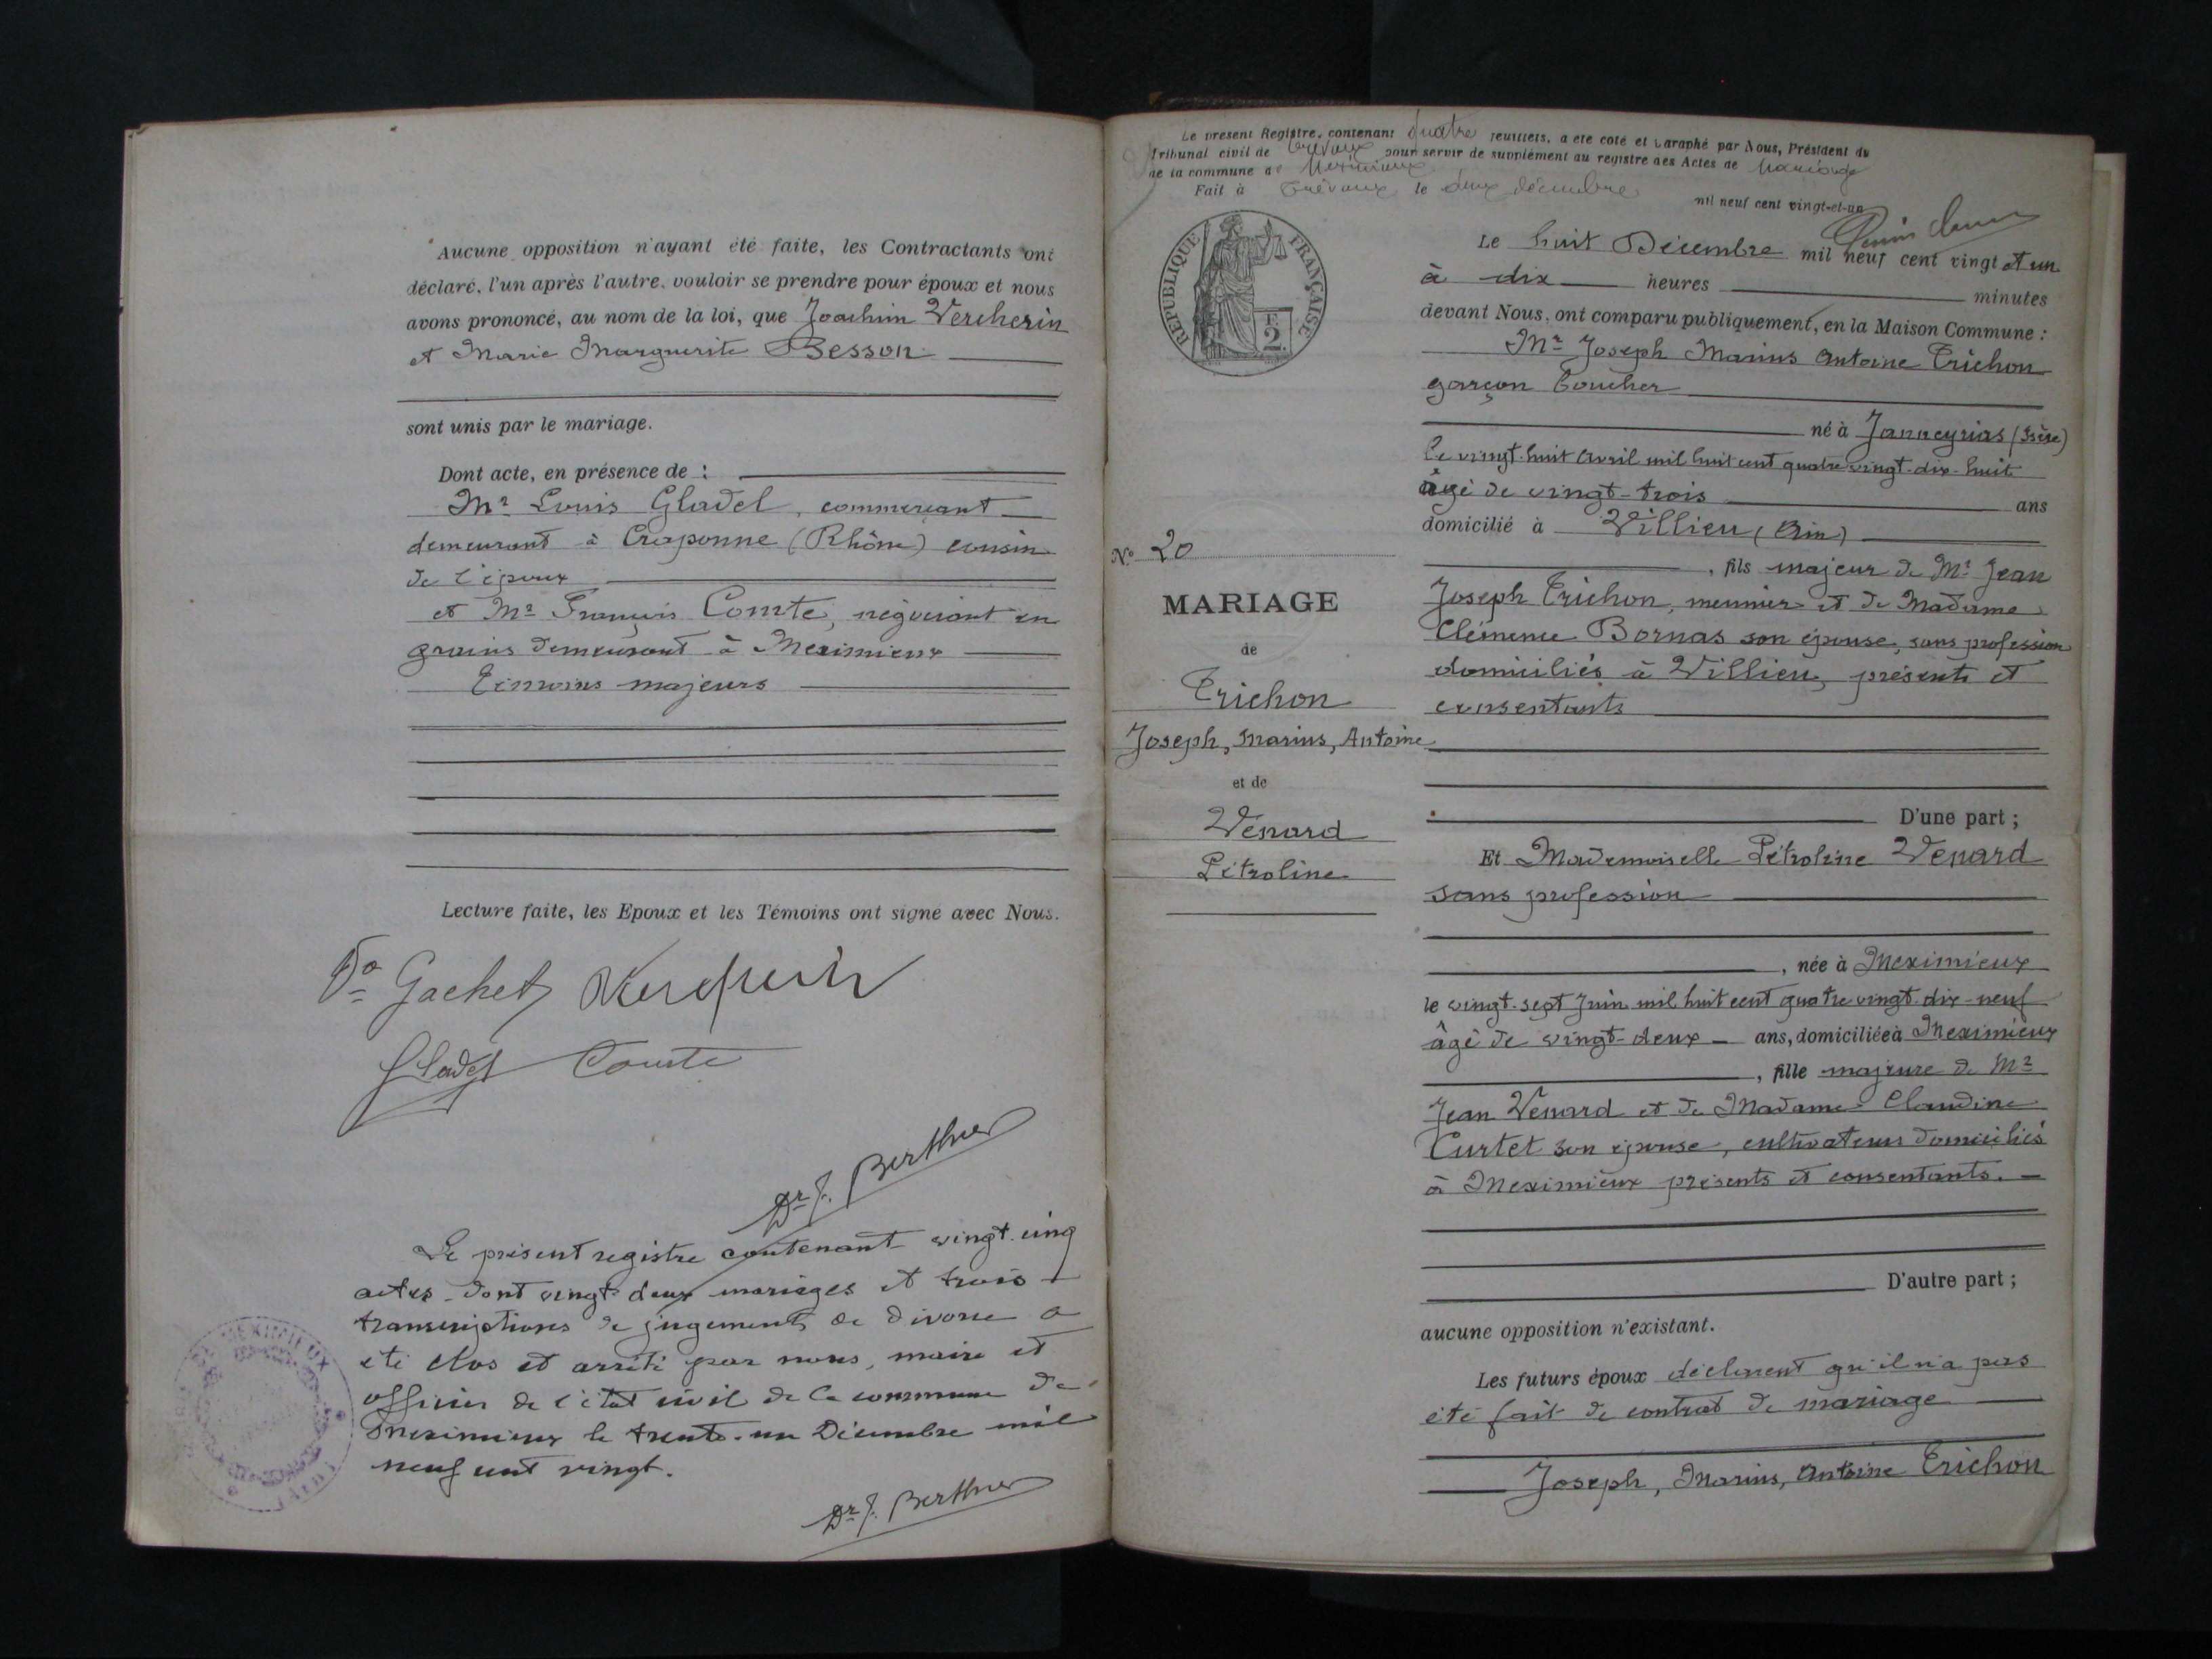 Aucune opposition n'ayant été faite, les Contractants ont
déclaré, l'un après l'autre, vouloir se prendre pour époux et nous
avons prononcé, au nom de la loi, que Joachim Vercherin
et Marie Marguerite Besson
sont unis par le mariage.
Dont acte, en présence de :
Mr Louis Gladel, commerçant
demeurant à Craponne (Rhône) cousin
de l'époux
et Mr François Comte, négociant en
grains demeurant à Meximieux
Témoins majeurs
Lecture faite, les Epoux et les Témoins ont signé avec Nous.
Gachet Vercherin
Gladel Comte
Dr J. Berthier
Le présent registre contenant vingt cinq
actes dont vingt deux mariages et trois
transcriptions de jugements de divorce a
été clos et arrêté par nous, maire et
officier de l'état civil de la commune de
Meximieux le trente-un Décembre mil
neuf cent vingt.
Dr J. Berthier
MEXIMIEUX
(AIN)
Le présent Registre, contenant quatre feuillets, a été coté et paraphé par Nous, Président du
Tribunal civil de Trévoux pour servir de supplément au registre des Actes de Mariage
de la commune de Meximieux
Fait à Trévoux le deux décembre mil neuf cent vingt-et-un
REPUBLIQUE FRANÇAISE
2
Nº 20
MARIAGE
de
Trichon
Joseph, Marius, Antoine
et de
Vénard
Pétroline
Le huit Décembre mil neuf cent vingt et un
à dix heures minutes
devant Nous, ont comparu publiquement, en la Maison Commune :
Mr Joseph Marius Antoine Trichon
garçon boucher
né à Janneyrias (Isère)
le vingt-huit avril mil huit cent quatre vingt-dix-huit
âgé de vingt-trois ans
domicilié à Villieu (Ain)
, fils majeur de Mr Jean
Joseph Trichon, meunier et de Madame
Clémence Bornas son épouse, sans profession
domiciliés à Villieu, présents et
consentants
D'une part ;
Et Mademoiselle Pétroline Venard
sans profession
, née à Meximieux
le vingt-sept Juin mil huit cent quatre vingt-dix-neuf
âgé de vingt-deux ans, domiciliée à Meximieux
, fille majeure de Mr
Jean Venard et de Madame Claudine
Curtet son épouse, cultivateurs domiciliés
à Meximieux présents et consentants.
D'autre part ;
aucune opposition n'existant.
Les futurs époux déclarent qu'il n'a pas
été fait de contrat de mariage
Joseph, Marius, Antoine Trichon